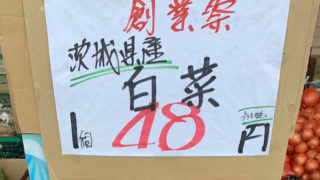 創業祭
茨城県産
白菜
1個 48円